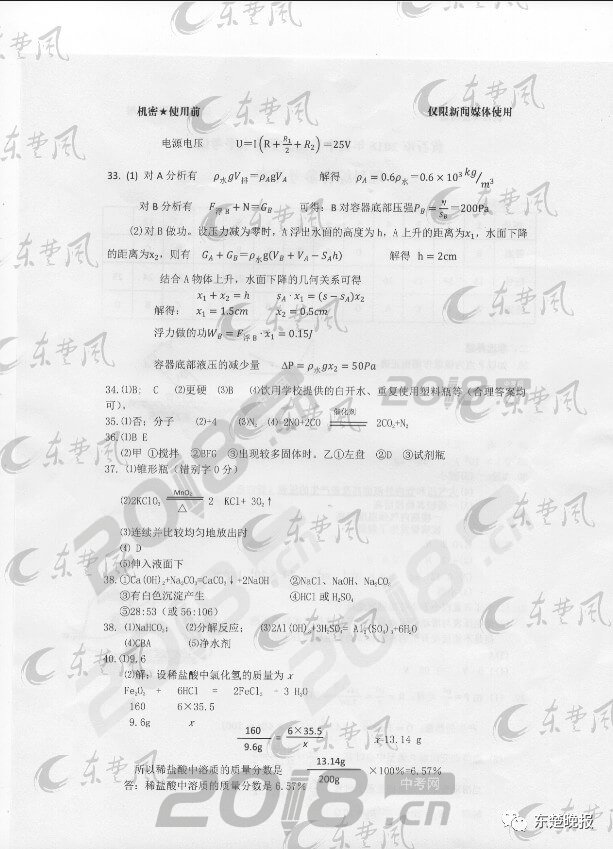 机密★使用前 仅限新闻媒体使用
电源电压 U=I(R+R₁/2+R₂)=25V
33. (1) 对 A 分析有 ρ水gV排=ρAgVA 解得 ρA=0.6ρ水=0.6×10³kg/m³
对 B 分析有 F浮B+N=GB 可得：B 对容器底部压强PB=N/SB=200Pa
(2)对 B 做功。设压力减为零时，A 浮出水面的高度为 h，A 上升的距离为x₁，水面下降
的距离为x₂，则有 GA+GB=ρ水g(VB+VA−SAh) 解得 h=2cm
结合 A 物体上升，水面下降的几何关系可得
x₁+x₂=h sA·x₁=(s−sA)x₂
解得： x₁=1.5cm x₂=0.5cm
浮力做的功WB=F浮B·x₁=0.15J
容器底部液压的减少量 ΔP=ρ水gx₂=50Pa
34.(1)B; C (2)更硬 (3)B (4)饮用学校提供的白开水、重复使用塑料瓶等（合理答案均
可）。
35.(1)否；分子 (2)+4 (3)N₂ (4) 2NO+2CO 催化剂 2CO₂+N₂
36.(1)B E
(2)甲 ①搅拌 ②BFG ③出现较多固体时。乙①左盘 ②D ③试剂瓶
37. (1)锥形瓶（错别字 0 分）
(2)2KClO₃ MnO₂ △ 2 KCl+ 3O₂↑
(3)连续并比较均匀地放出时
(4) D
(5)伸入液面下
38. ①Ca(OH)₂+Na₂CO₃=CaCO₃↓+2NaOH ②NaCl、NaOH、Na₂CO₃
③有白色沉淀产生 ④HCl 或 H₂SO₄
⑤28:53（或 56:106）
38. (1)NaHCO₃； (2)分解反应； (3)2Al(OH)₃+3H₂SO₄= Al₂(SO₄)₃+6H₂O
(4)CBA (5)净水剂
40.(1)9.6
(2)解：设稀盐酸中氯化氢的质量为 x
Fe₂O₃ + 6HCl = 2FeCl₃ + 3 H₂O
160 6×35.5
9.6g x
160/9.6g = 6×35.5/x x=13.14 g
所以稀盐酸中溶质的质量分数是 13.14g/200g ×100%=6.57%
答：稀盐酸中溶质的质量分数是 6.57%
东楚风
2018.cn
中考网
东楚晚报